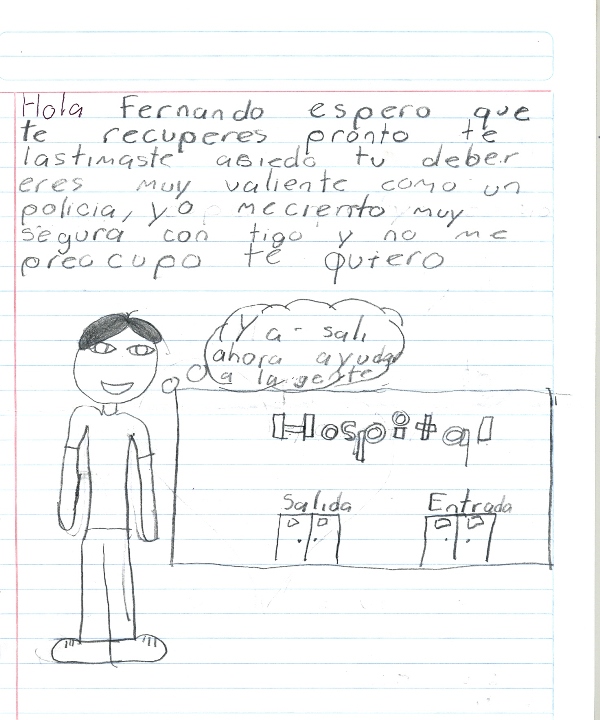 Hola Fernando espero que
te recuperes pronto te
lastimaste asiedo tu deber
eres muy valiente como un
policia, yo meciento muy
segura con tigo y no me
preocupo te quiero
¡Ya sali
ahora ayudar
a la gente
Hospital
Salida Entrada